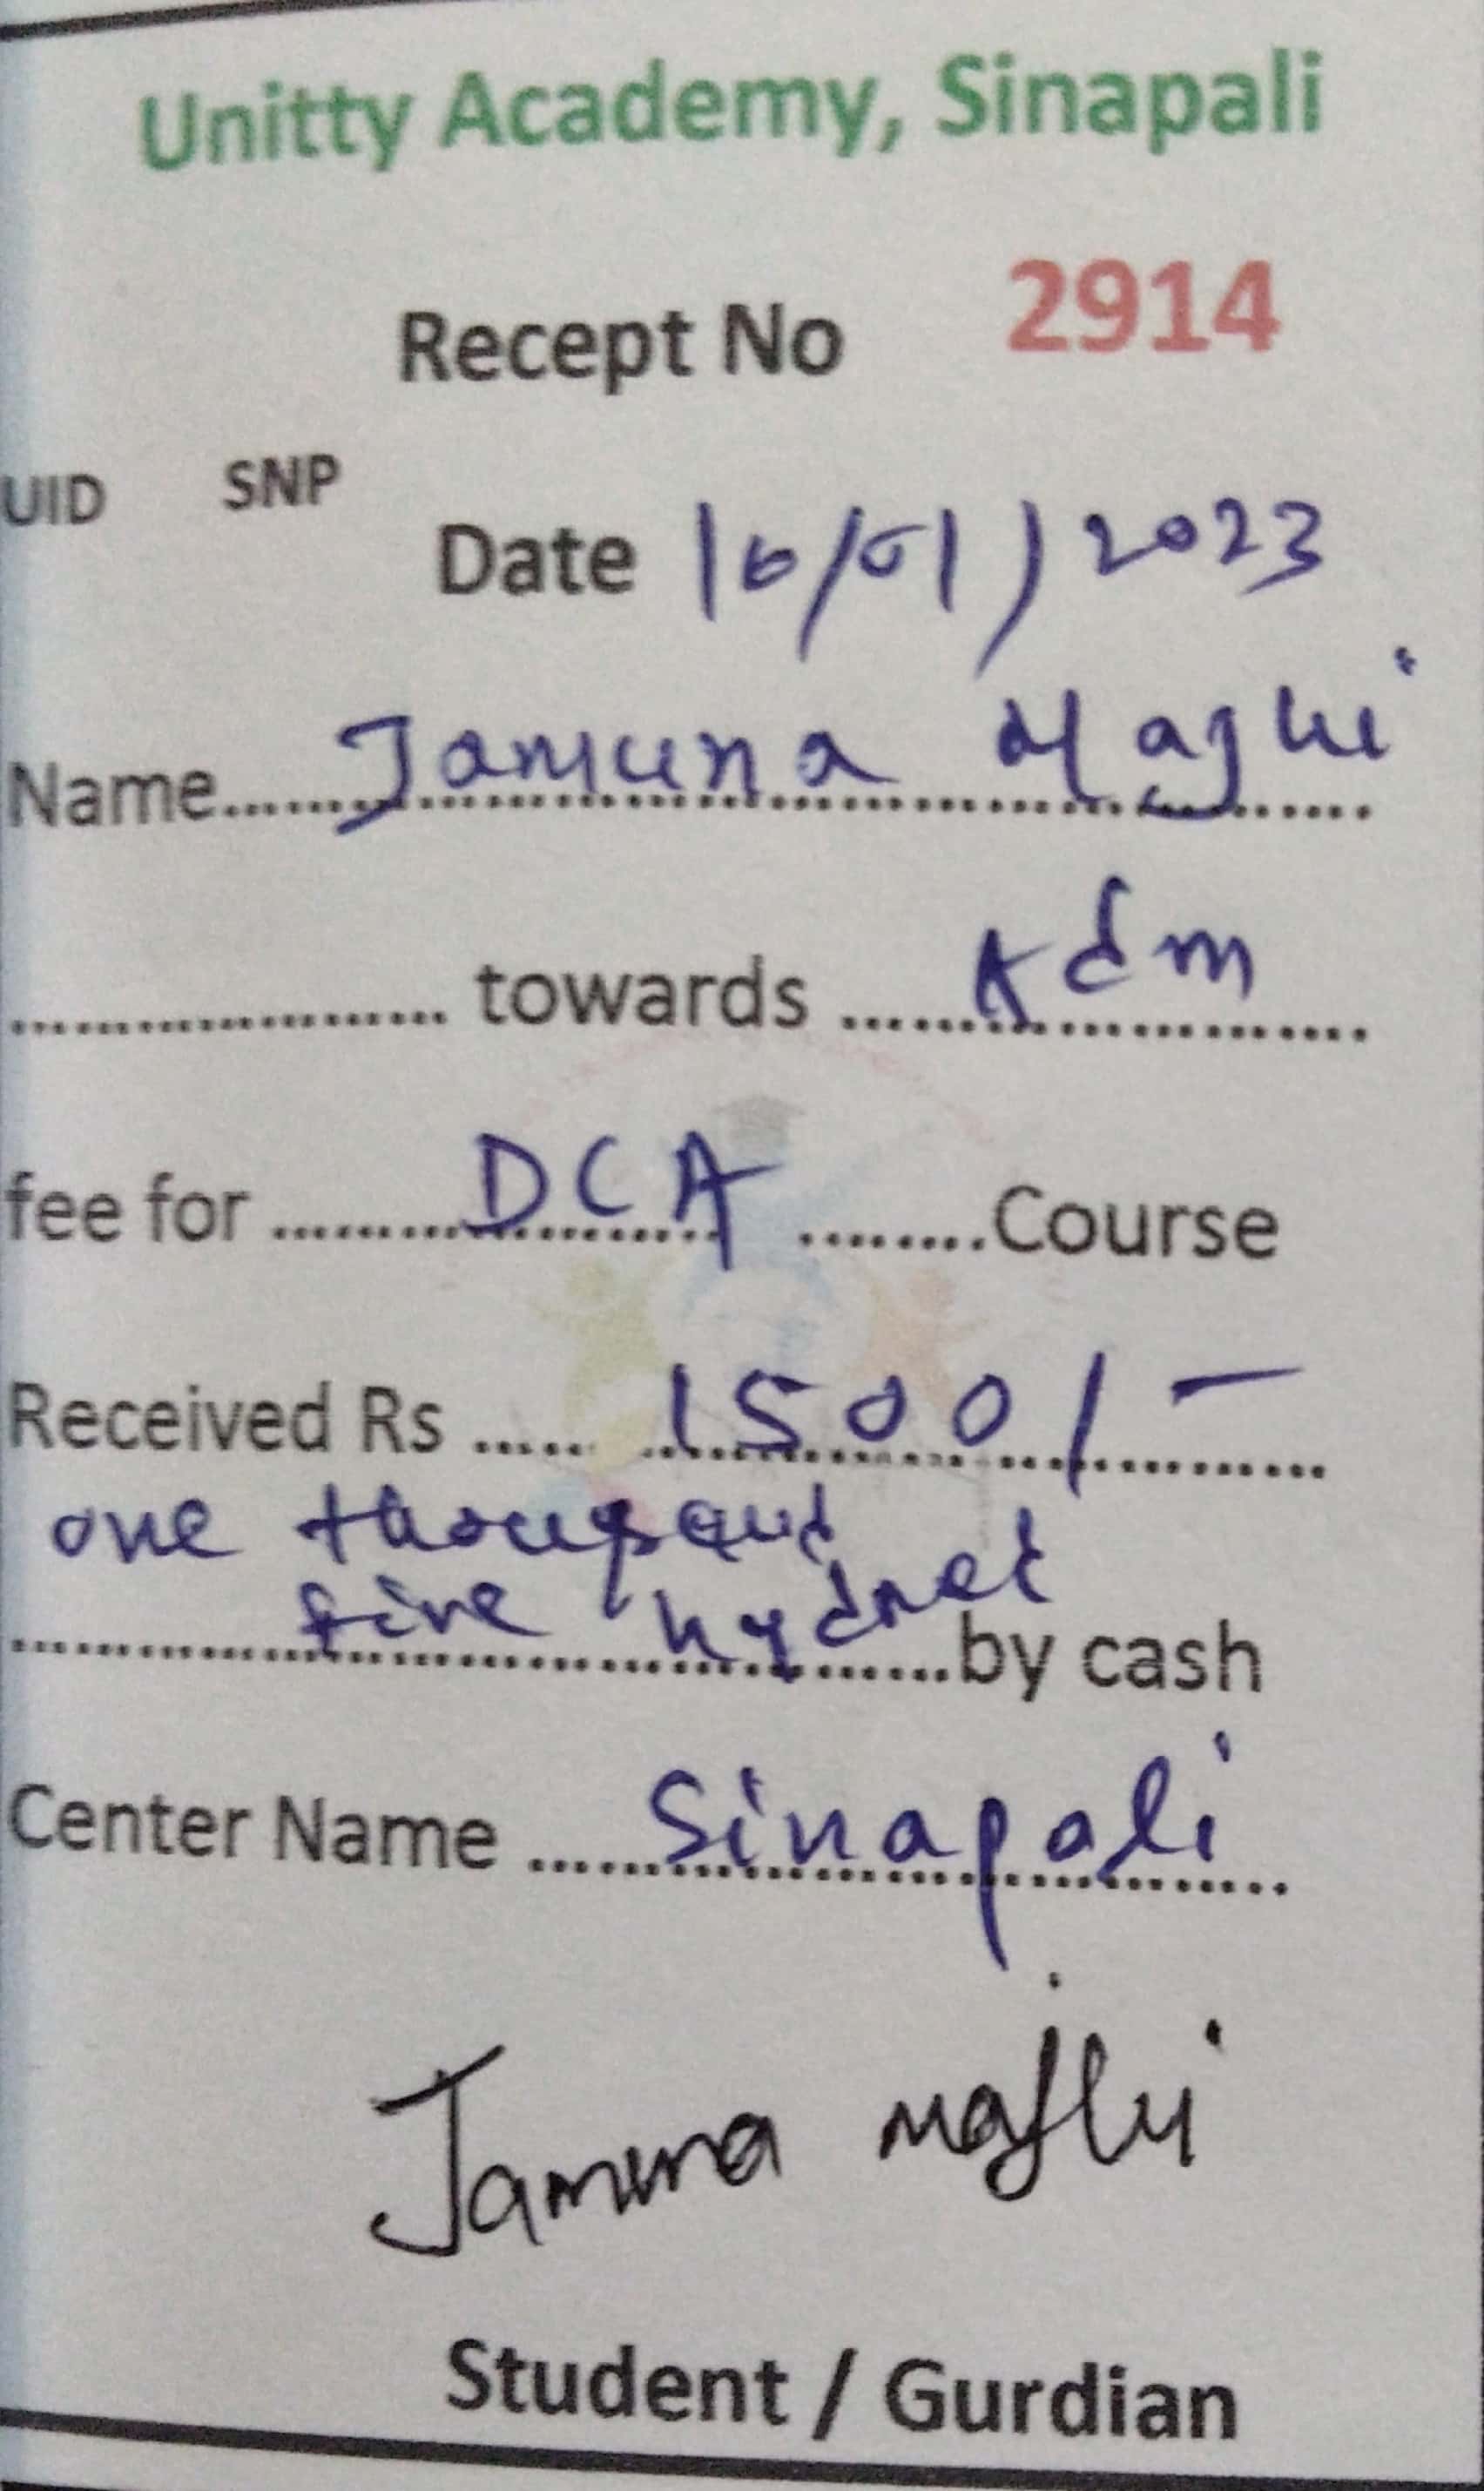 Unitty Academy, Sinapali
Recept No 2914
UID SNP
Date 16/01/2023
Name.......Jamuna Majhi
.................... towards ....Adm
fee for ........DCA ........Course
Received Rs ..... 1500/-
one thousand
five hydred by cash
Center Name ....Sinapali
Jamuna majhi
Student / Gurdian